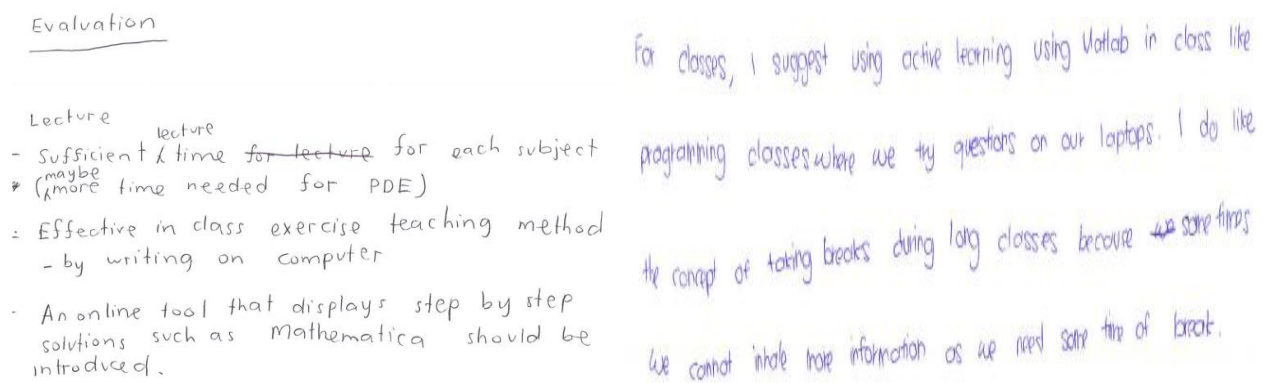 Evaluation
Lecture
lecture
- Sufficient time for lecture for each subject
maybe
* (more time needed for PDE)
- Effective in class exercise teaching method
- by writing on computer
- An online tool that displays step by step
solutions such as Mathematica should be
introduced.
For classes, I suggest using active learning using Matlab in class like
programming classes where we try questions on our laptops. I do like
the concept of taking breaks during long classes because we sometimes
we cannot inhale more information as we need some time of break.